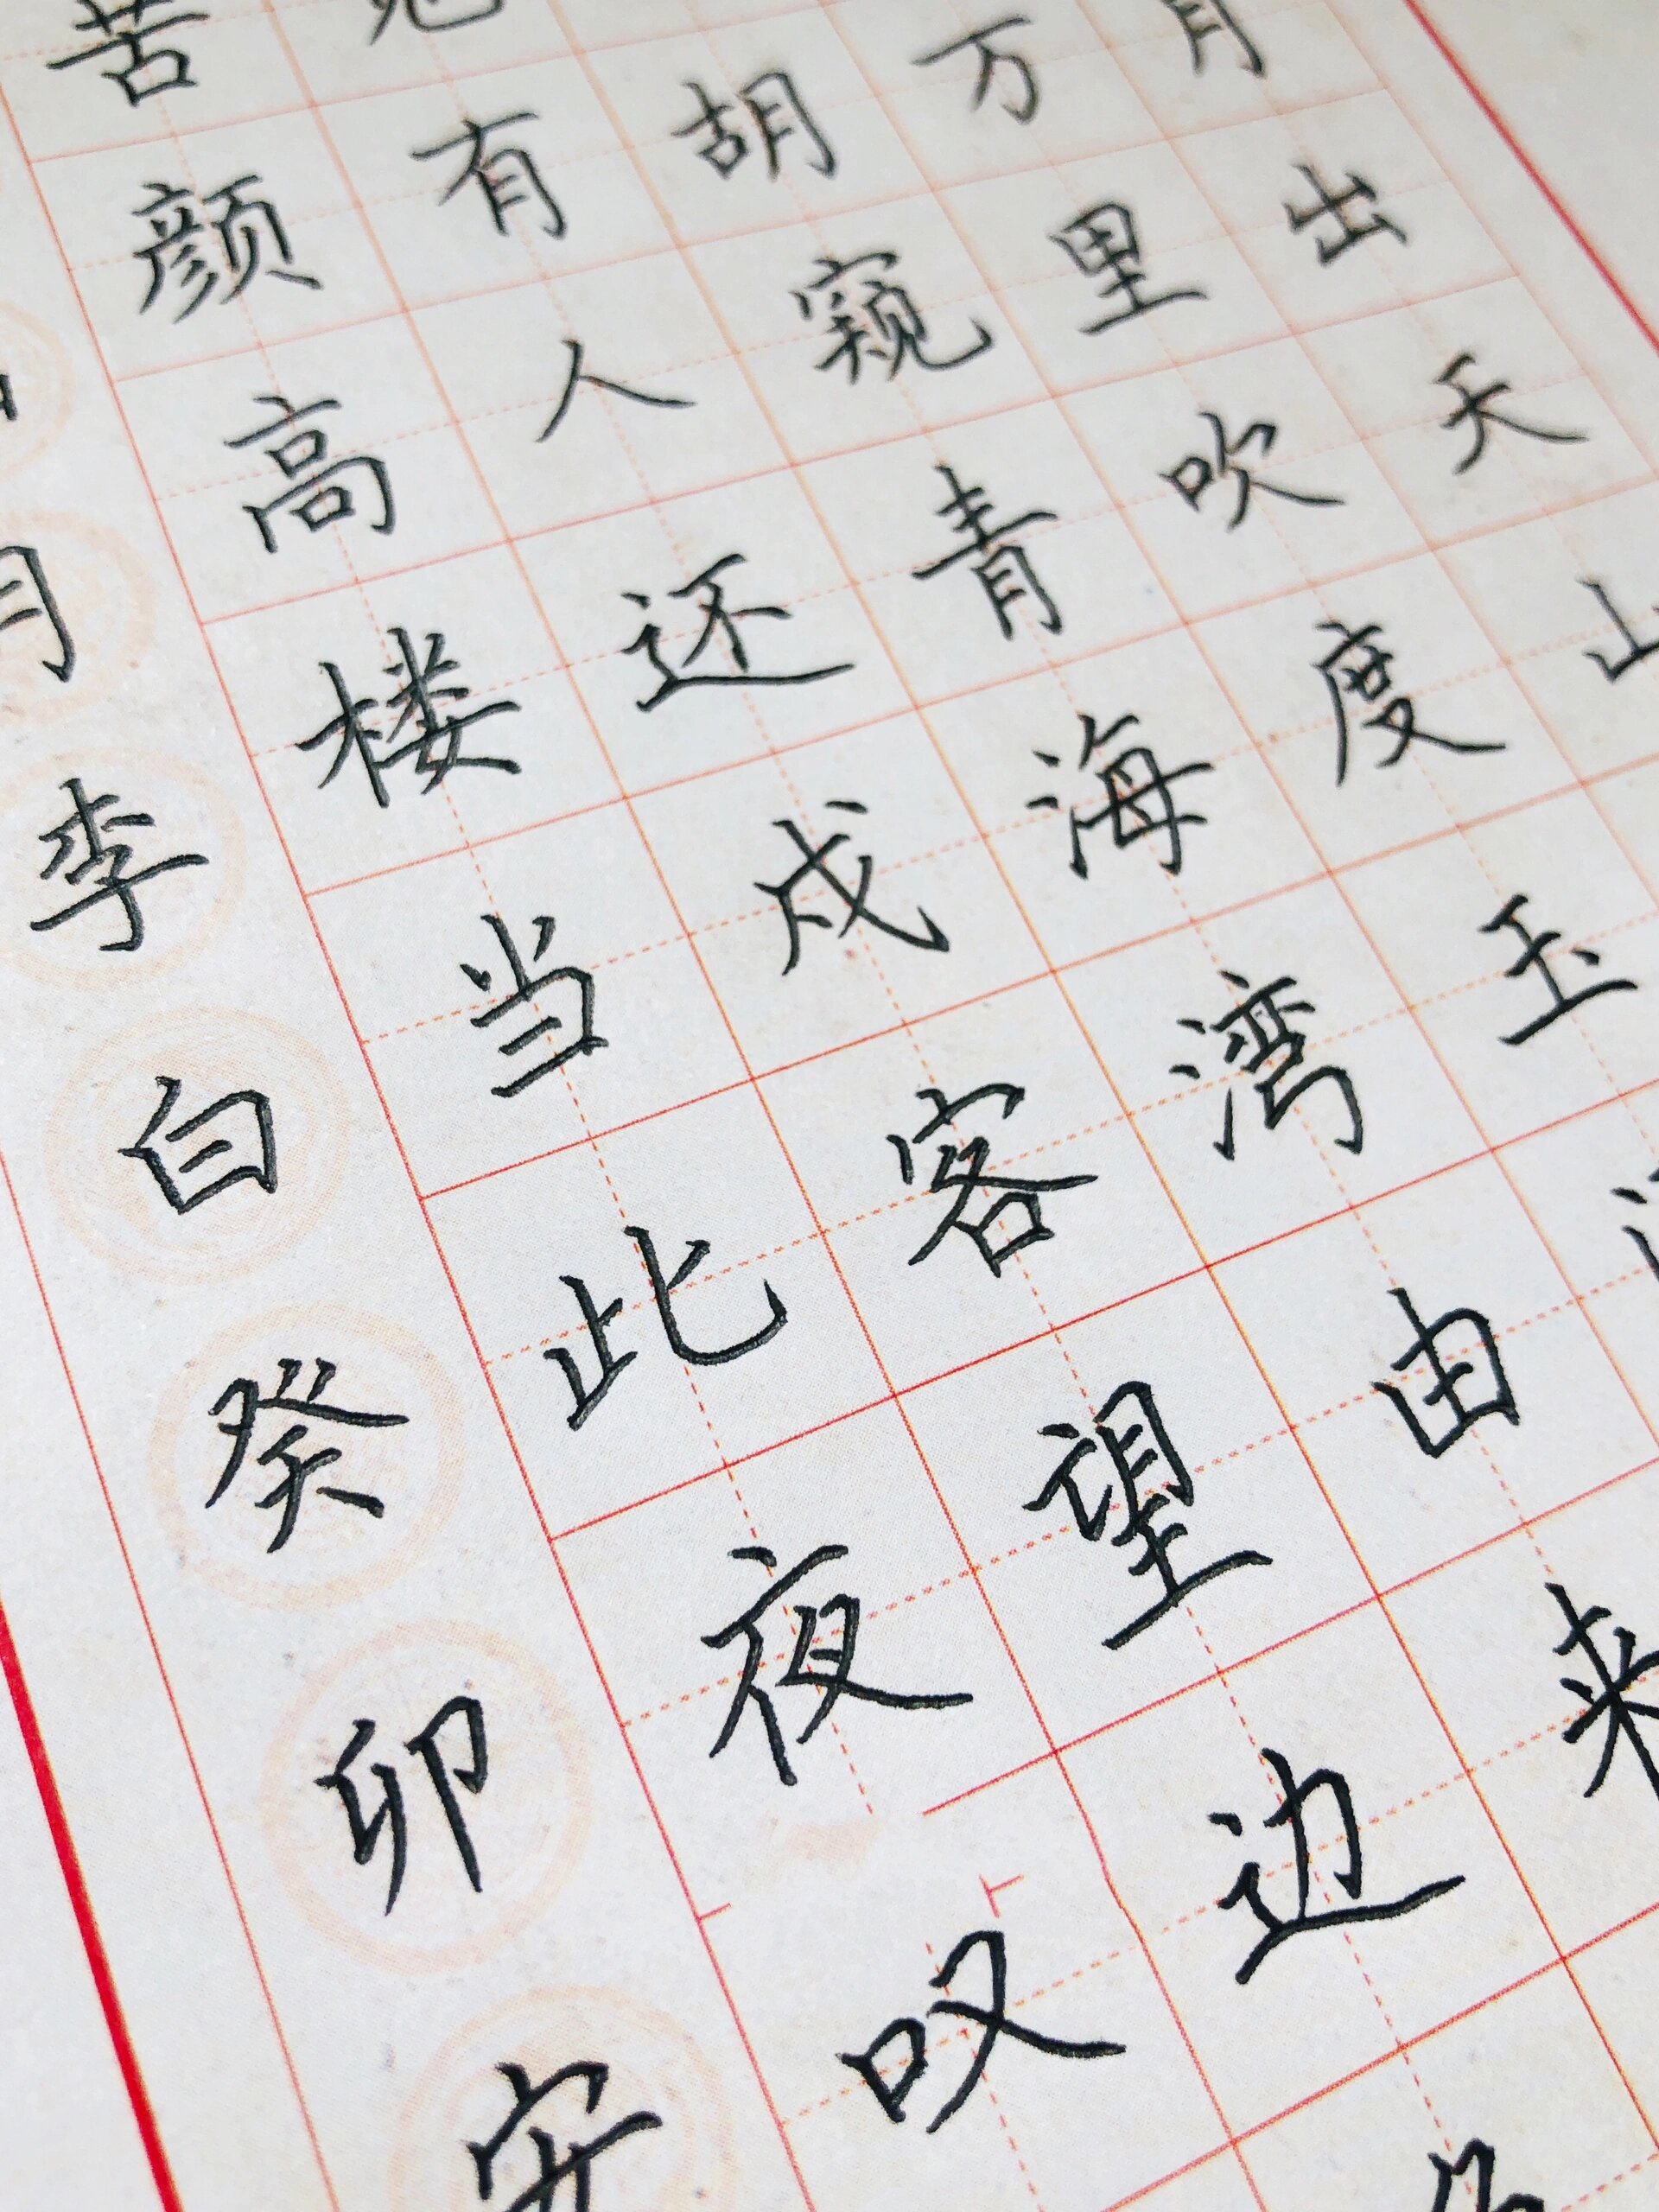 月出天山
万里吹度玉
胡窥青海湾由来
有人还戍客望边
苦颜高楼当此夜叹
月李白癸卯